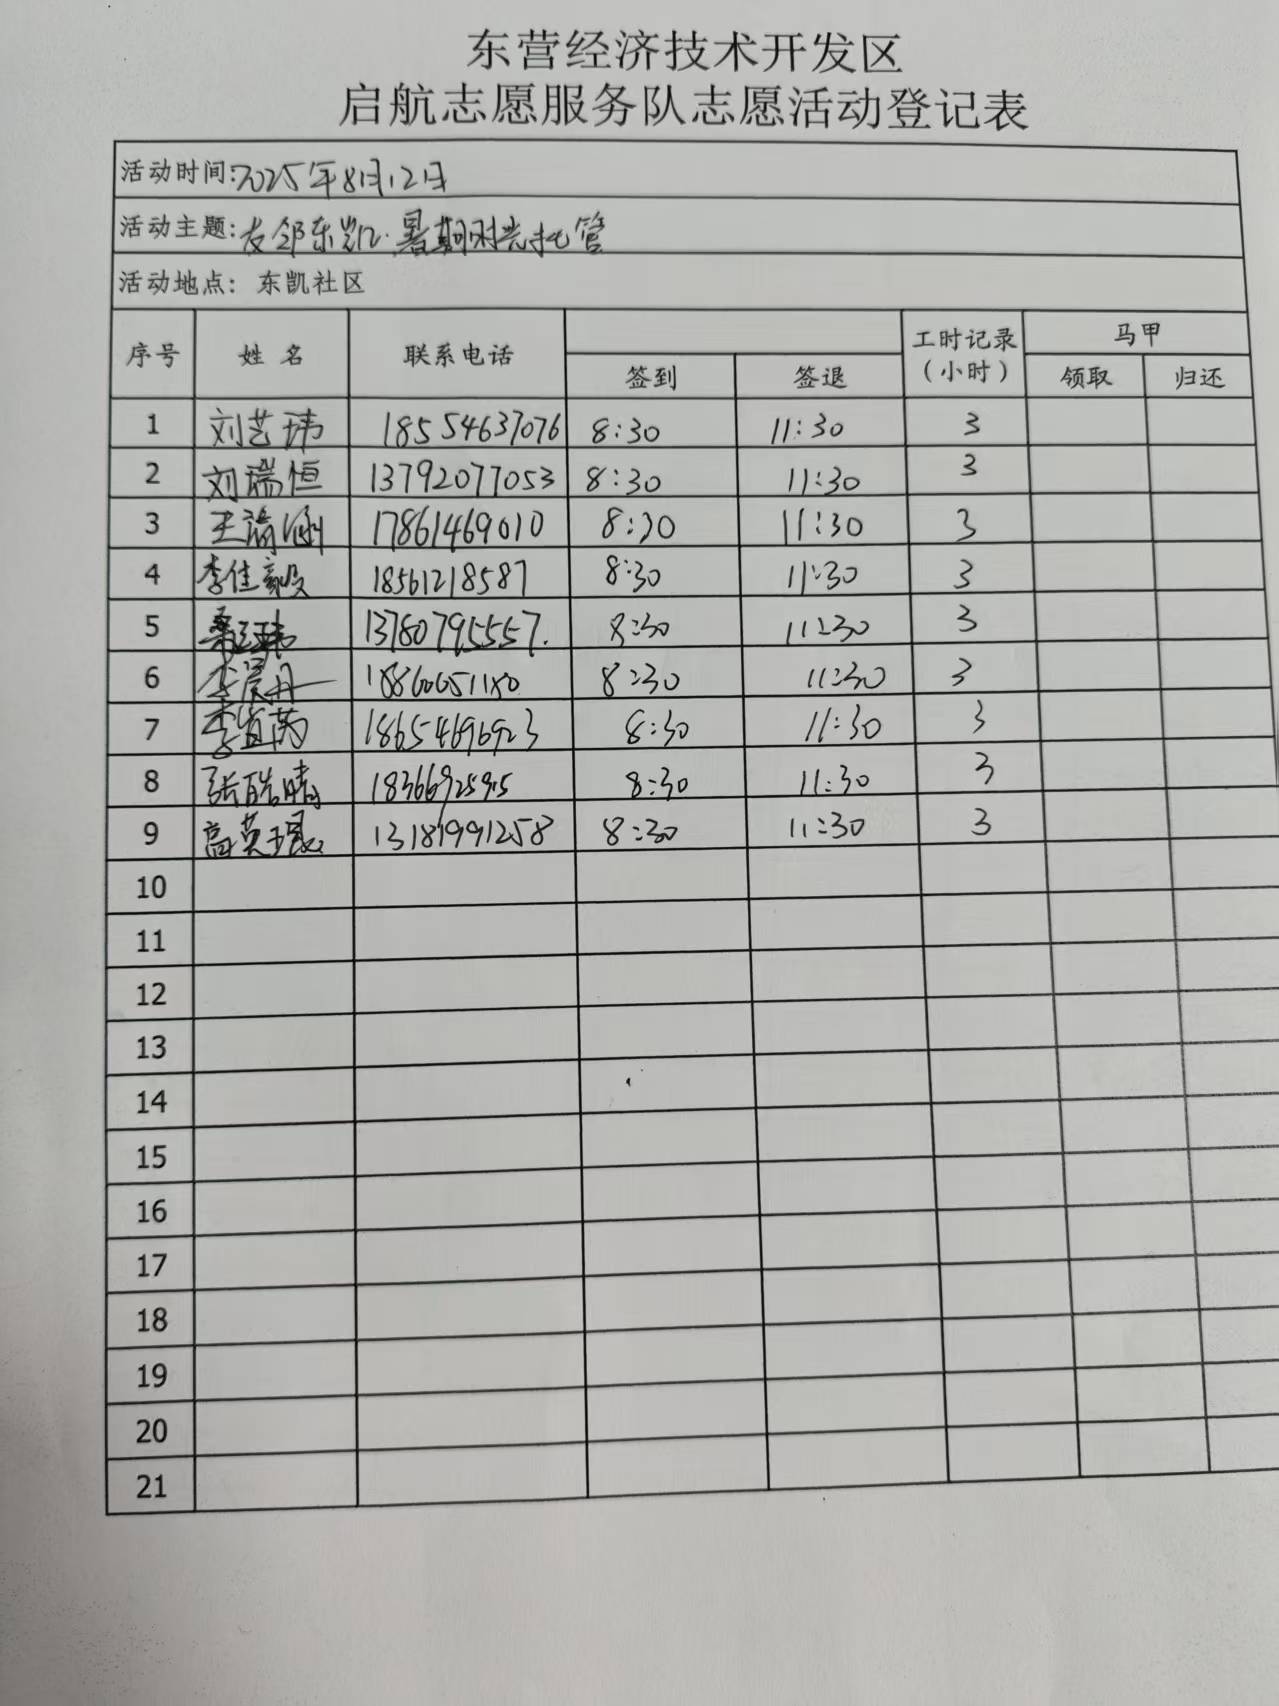 东营经济技术开发区
启航志愿服务队志愿活动登记表
活动时间:2025年8月12日
活动主题:友邻东凯·暑期时光托管
活动地点: 东凯社区
序号 姓名 联系电话 签到 签退 工时记录(小时) 马甲 领取 归还
1 刘艺玮 18554637076 8:30 11:30 3
2 刘瑞恒 13792077053 8:30 11:30 3
3 王瀹涵 17861469010 8:30 11:30 3
4 李佳毅 18561218587 8:30 11:30 3
5 13780795557. 8:30 11:30 3
6 李晨丹 18860651180 8:30 11:30 3
7 李宜芮 18654696923 8:30 11:30 3
8 张皓晴 18366925915 8:30 11:30 3
9 高英琨 13181991258 8:30 11:30 3
10
11
12
13
14
15
16
17
18
19
20
21